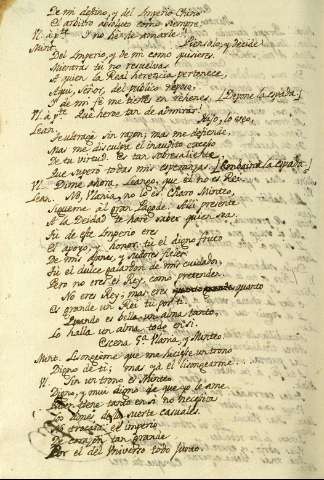 De mi destino, y del Imperio Chino
El arbitro absoluto como siempre.
Y no he de amarle?
Mint. Piensalo, y decide
Del Imperio, y de mi como quisieres.
Mientras tu no resuelvas
A quien la Real herencia pertenece,
Aqui, Señor, del publico reposo
Y de mi fe me tienes en rehenes. [Depone la espada.]
Que heroe tan de admirar!
Lean. Hijo, lo creo,
Se ultraja sin razon; mas me defiende,
Mas me disculpe el inaudito excesso
De tu virtud. Es tan sobresaliente,
Que superó todas mis esperanzas.
Dime ahora, Leango, que él no es Rei.
Lean. No, Vlania, no lo es. Charo Minteo,
Sigueme al gran Pagode. Alli presente
A la Deidad te haré saber quien sea.
Tu de este Imperio eres
El apoyo, y honor: tu el digno fruto
De mis afanes, y sudores fieles:
Tu el dulce galardon de mis cuidados,
Pero no eres el Rey, como pretendes.
No eres Rey; mas eres quanto
Es grande un Rei tu por ti.
Quando es bella un alma tanto,
Lo halla un alma todo en si.
Escena 5.ª Vlania, y Minteo
Mint. Lisongeeme que me hiciesse un trono
Digno de ti; mas ya el lisongearme
Vl. Sin un trono es Minteo
Digno, y mui digno de que yo le ame.
Quien tiene tanto en si no necesita
Los dones de la suerte casuales.
Yo trocára el imperio
De corazon tan grande
Por el del Universo todo junto.